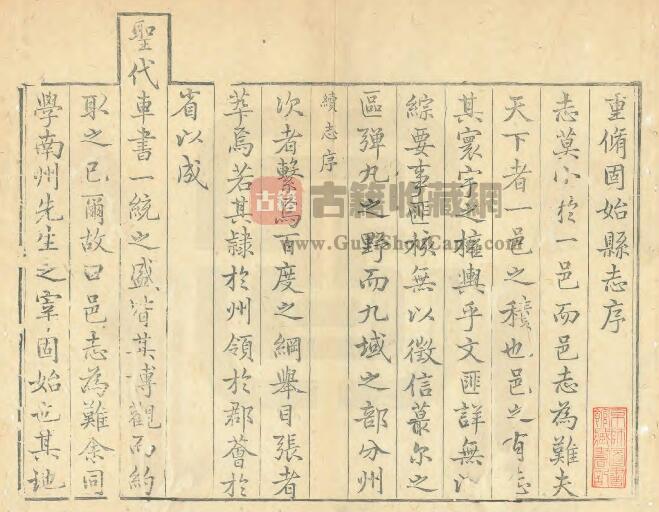 重脩固始縣志序
志莫小於一邑而邑志為難夫
天下者一邑之積也邑之有志
其寰宇之權輿乎文匪詳無以
綜要事匪核無以徵信蕞尔之
區弹丸之野而九域之部分州
續志序
次者繫焉百度之綱舉目張者
萃焉若其隷於州領於郡薈於
省以成
聖代車書一統之盛皆其博觀而約
取之已爾故曰邑志為難余同
學南州先生之宰固始也其地
古籍
古籍收藏網